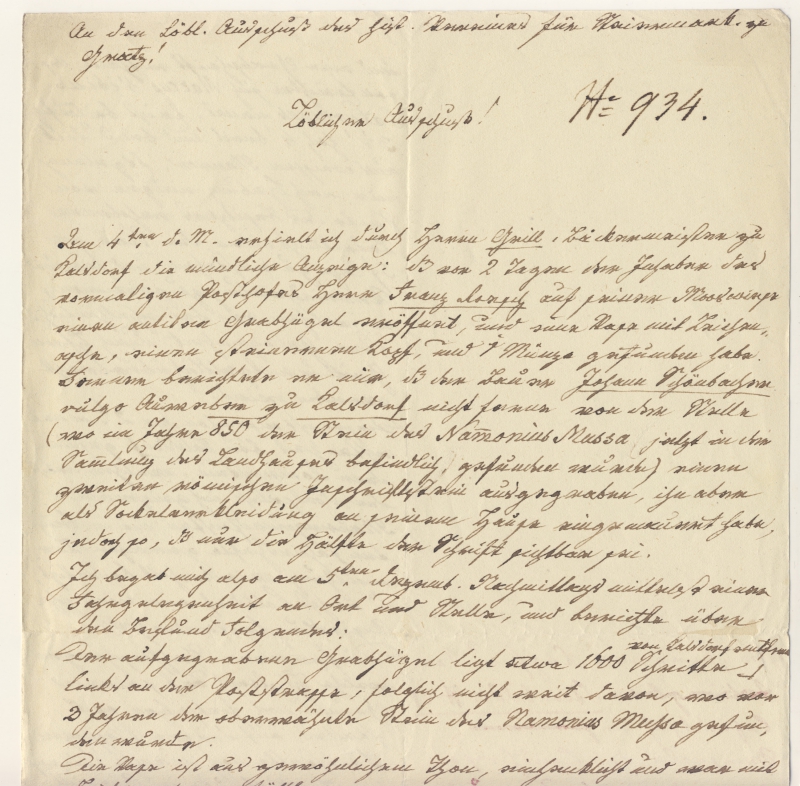 An den Löbl. Ausschuss des hist. Vereines für Steiermark zu
Gratz!
No 934.
Löblicher Ausschuss!
Am 4ten d. M. erhielt ich durch Herrn Grill, Bäckermeister zu
Kalsdorf die mündliche Anzeige: dß vor 2 Tagen der Inhaber des
vormaligen Posthofes Herr Franz auf seiner Mooswiese
einen antiken Grabhügel eröffnet, und eine Vase mit Leichen-
asche, einen steinernen Kopf, und 1 Münze gefunden habe.
Ferner berichtete er mir, dß der Bauer Johann Schönbacher
vulgo zu Kalsdorf nicht ferne von der Stelle
(wo im Jahre 850 der Stein des Nammonius Mussa, jetzt in der
Sammlung des Landhauses befindlich, gefunden wurde) einen
zweiten römischen Inschriftstein ausgegraben, ihn aber
als Sockelverkleidung an seinem Hause eingemauert habe,
jedoch so, dß nur die Hälfte der Schrift sichtbar sei.
Ich begab mich also am 5ten Dezemb. Nachmittags mittelst einer
Fahrgelegenheit an Ort und Stelle, und berichte über
den Befund Folgendes:
Der aufgegrabene Grabhügel ligt etwa 1600 Schritte von Kalsdorf entfernt
links an der Poststrasse, folglich nicht weit davon, wo vor
3 Jahren der oberwähnte Stein des Namonius Mussa gefun-
den wurde.
Die Vase ist aus gewöhnlichem Thon, und war mit